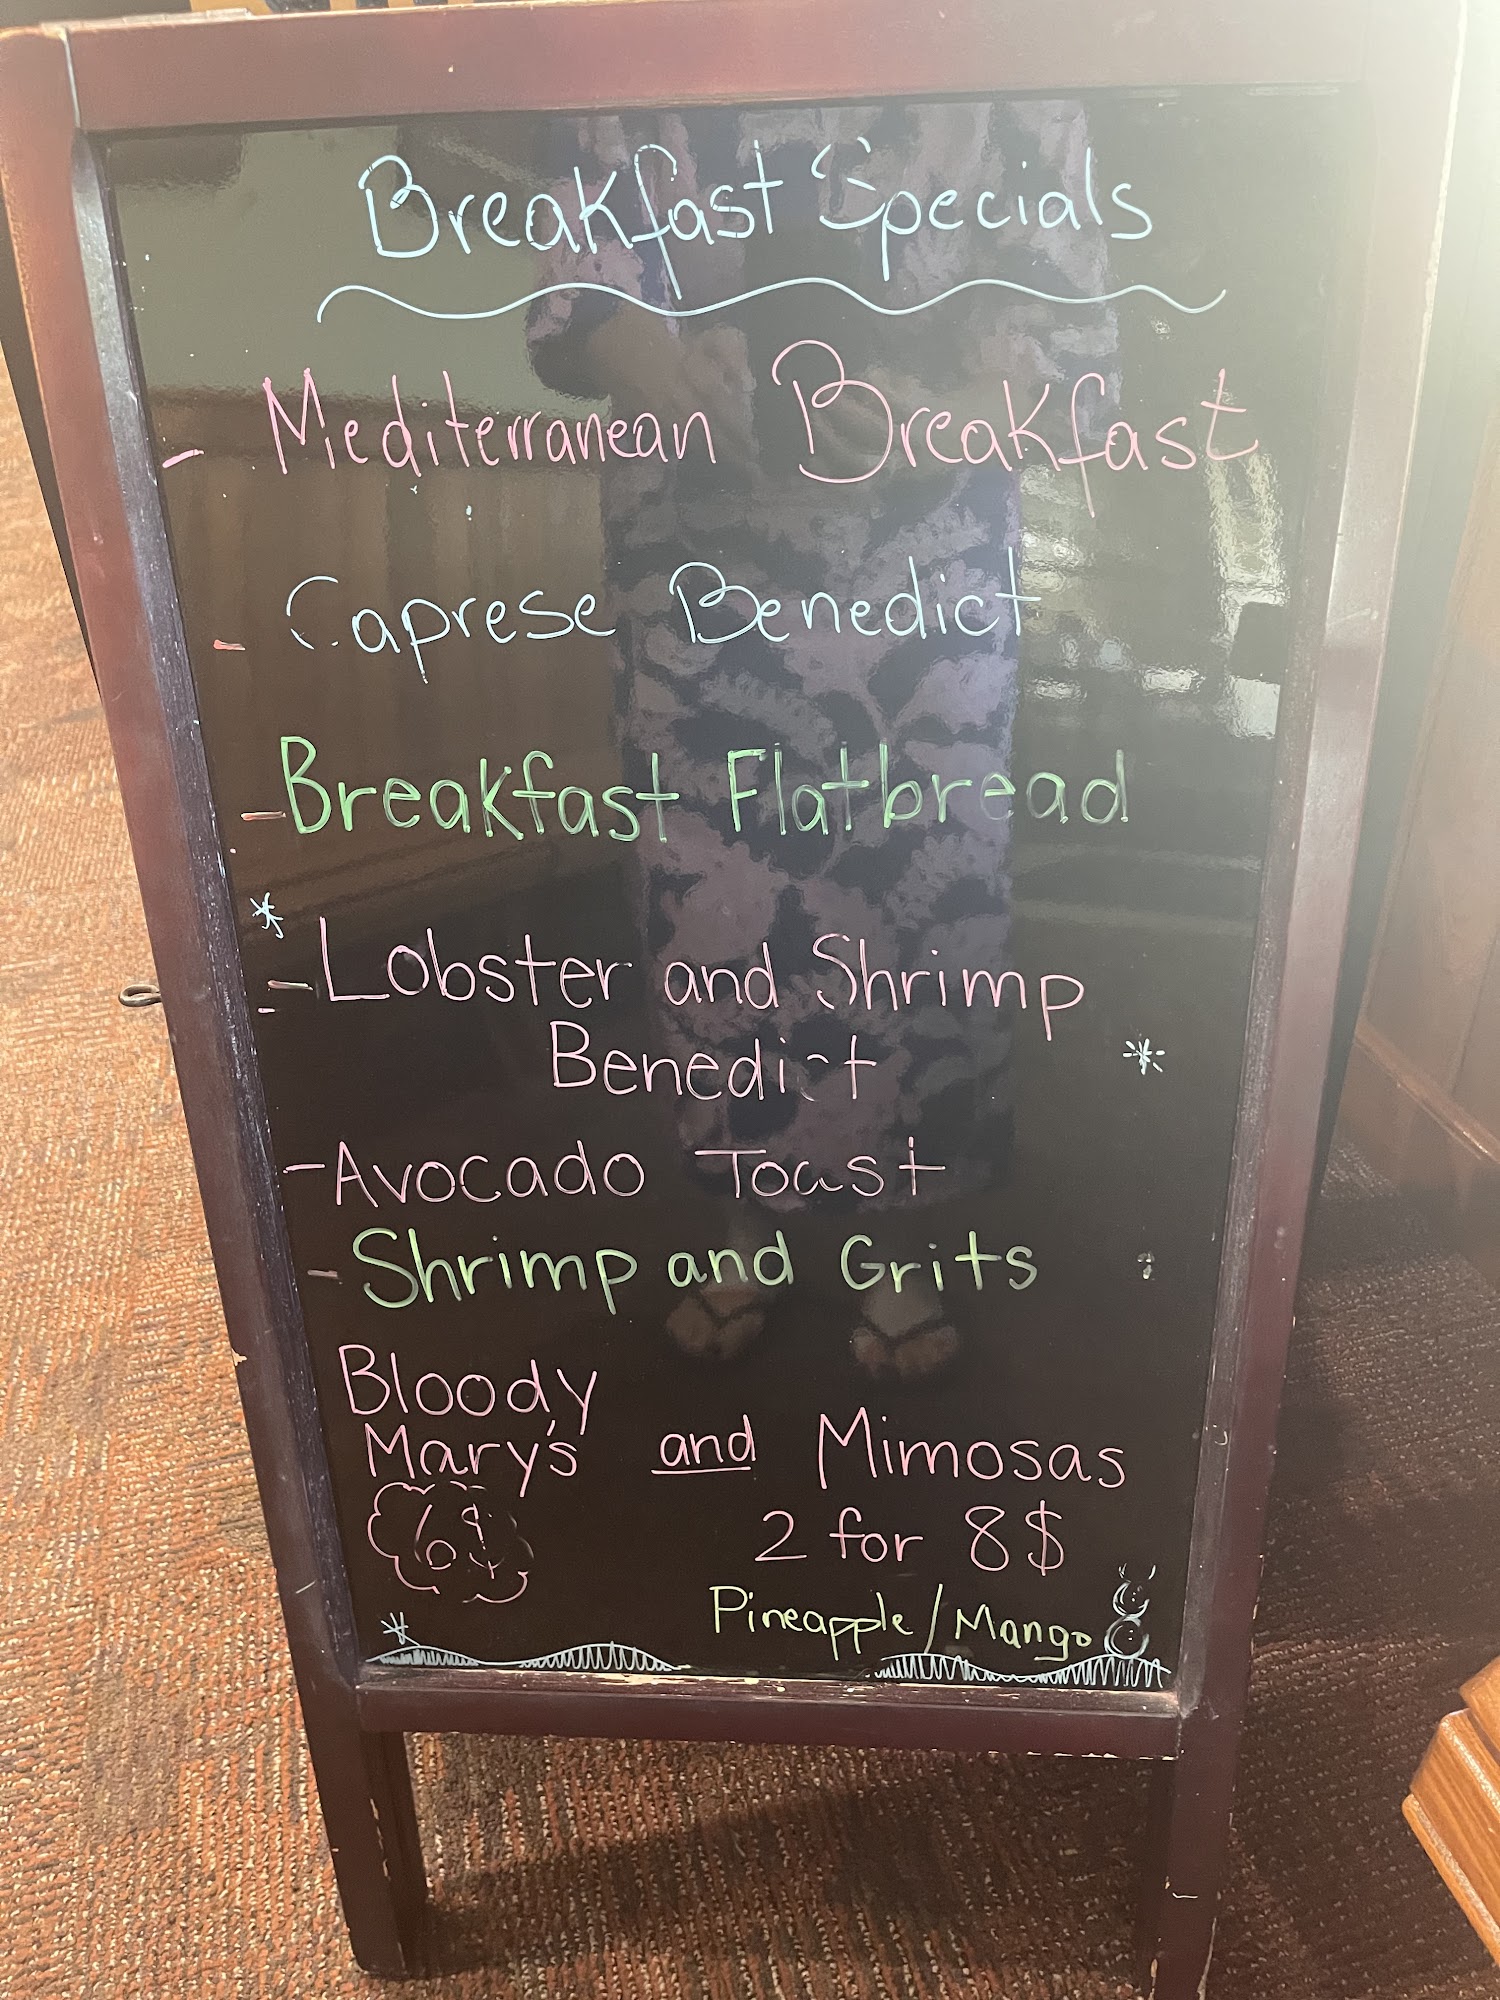 Breakfast Specials
- Mediterranean Breakfast
- Caprese Benedict
- Breakfast Flatbread
* - Lobster and Shrimp
Benedict *
- Avocado Toast
- Shrimp and Grits
Bloody
Mary's and Mimosas
6$ 2 for 8$
Pineapple/Mango